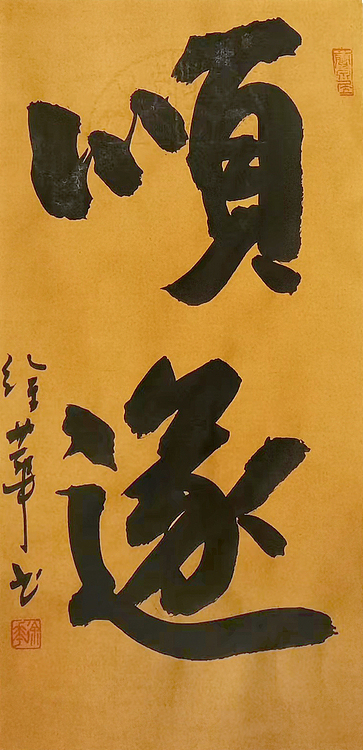 順遂
華书